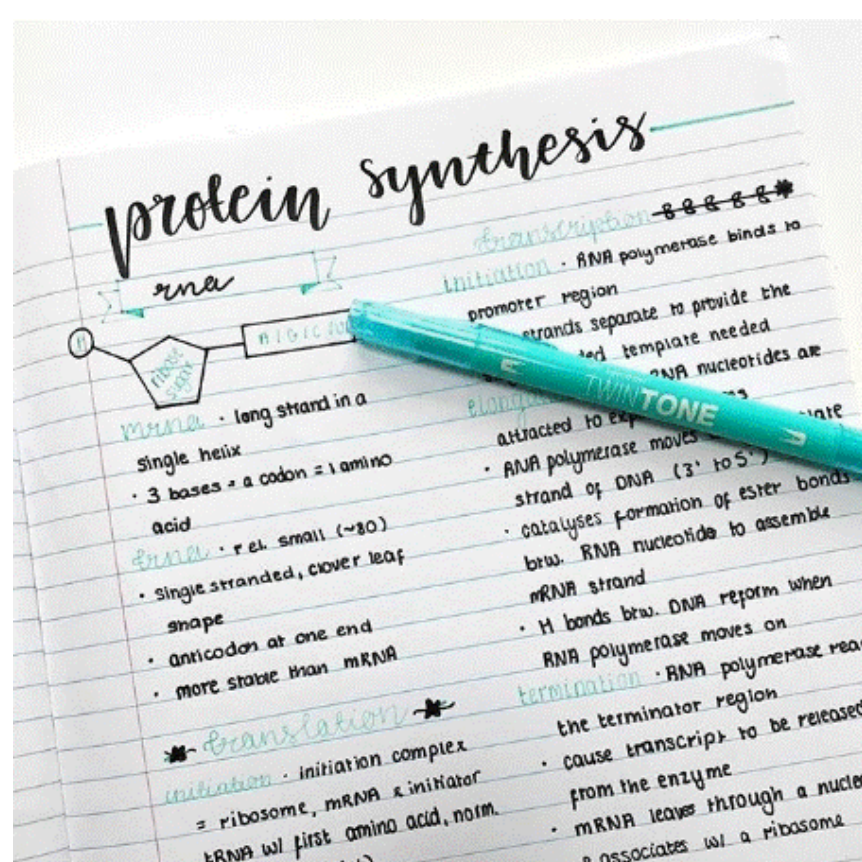 protein synthesis
rna
ribose
sugar
mrna · long strand in a
single helix
· 3 bases = a codon = 1 amino
acid
trna · rel. small (~80)
· single stranded, clover leaf
shape
· anticodon at one end
· more stable than mRNA
translation
initiation · initiation complex
= ribosome, mRNA & initiator
tRNA w/ first amino acid, norm.
transcription
initiation · RNA polymerase binds to
promoter region
strands separate to provide the
template needed
RNA nucleotides are
attracted to
· RNA polymerase moves
strand of DNA (3' to 5')
· catalyses formation of ester bonds
btw. RNA nucleotide to assemble
mRNA strand
· H bonds btw. DNA reform when
RNA polymerase moves on
termination · RNA polymerase
the terminator region
· cause transcript to be released
from the enzyme
· mRNA leaves through a
associates w/ a ribosome
TWINTONE